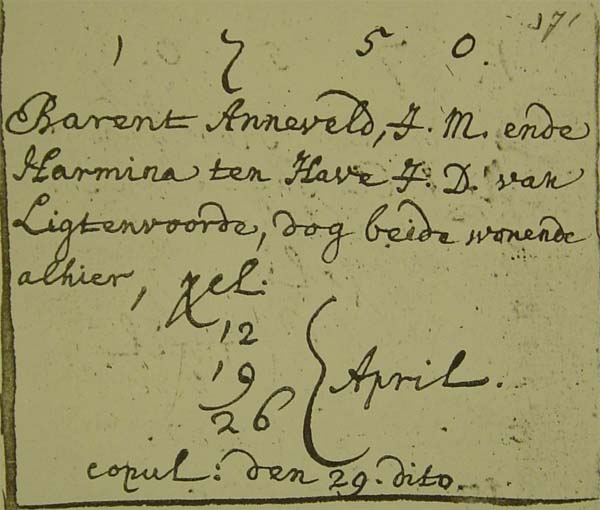 171
1 7 5 0.
Barent Anneveld, J. M. ende
Harmina ten Have J. D. van
Ligtenvoorde, dog beide wonende
alhier, pcl.
12
19 } April.
26
copul: den 29. dito.